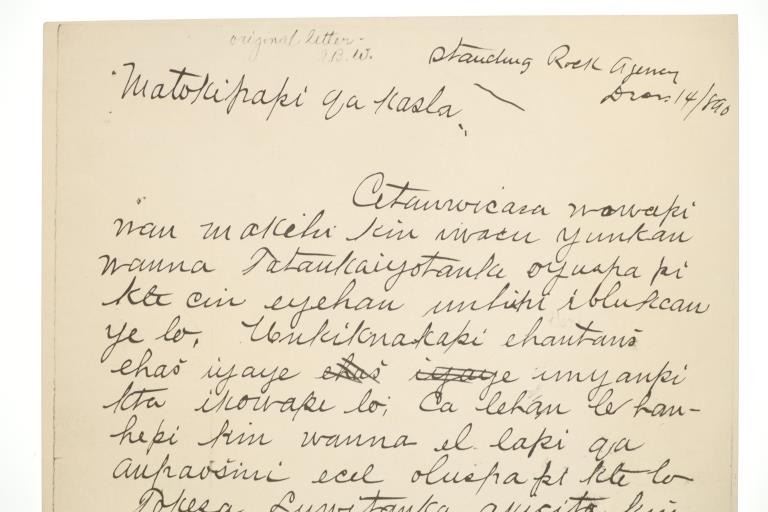 original letter -
J.B.W.
Standing Rock Agency
Dec. 14/890
"Matokipapi qa Kasla"
Cetanwicasa wowapi
wan makihi kin iwacu yunkan
wanna Tatankaiyotanka oyuspapi
kte cin eyehan unhipi iblukcan
ye lo. Unkiknakapi ehantanš
ehaš iyaye ehaš iyaye unyanpi
kta ikowape lo; Ca lehan le han-
hepi kin wanna el lapi qa
anpaošini ecel oluspapi kte lo